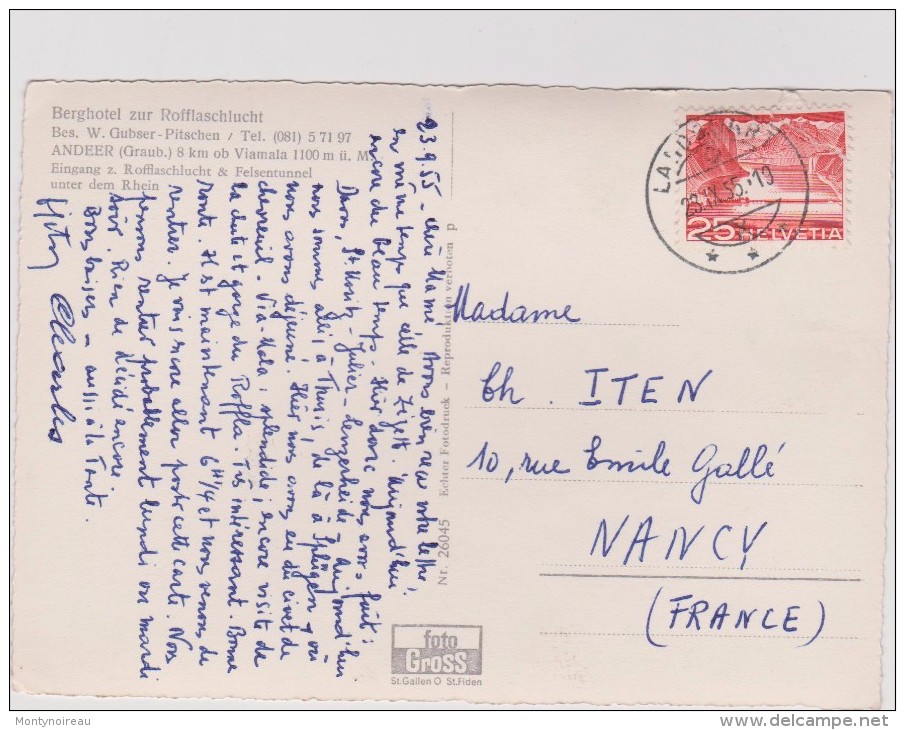 Berghotel zur Rofflaschlucht
Bes. W. Gubser-Pitschen / Tel. (081) 5 71 97
ANDEER (Graub.) 8 km ob Viamala 1100 m ü. M.
Eingang z. Rofflaschlucht & Felsentunnel
unter dem Rhein
23.9.55 - Chère Mamé. Avons bien reçu votre lettre,
en même temps que celle de Zizett. Aujourd'hui
encore du beau temps. Hier donc nous avons fait:
Davos, St. Moritz - Julier - Lenzerheide. Aujourd'hui
nous sommes allés à Thusis, de là à Splügen où
nous avons déjeuné. Hier nous avons eu du civet de
chevreuil. Via-Mala; splendide; encore visite de
la chute et gorge du Roffla. Très intéressant. Bonne
route. Il est maintenant 6H 1/4 et nous venons de
rentrer. Je vais encore aller porter cette carte. Nous
pensons rentrer probablement lundi ou mardi
soir. Rien de décidé encore.
Bons baisers - aussi à la Tante.
Charles
Nr. 26045 Echter Fotodruck - Reproduktion verboten p
foto
Gross
St. Gallen O St. Fiden
LANDQUART
23.IX.55.-19
25 HELVETIA
Madame
Ch. ITEN
10, rue Emile Gallé
NANCY
(FRANCE)
Montynoireau
delcampe.net